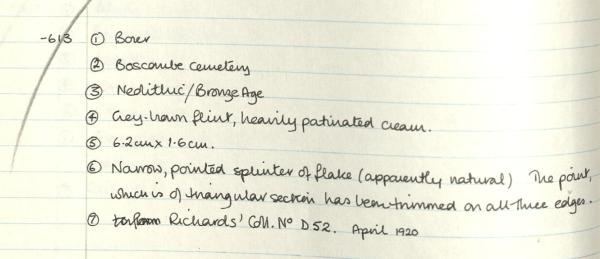 -613 ① Borer
② Boscombe Cemetery
③ Neolithic/Bronze Age
④ Grey-brown flint, heavily patinated cream.
⑤ 6.2cm x 1.6cm.
⑥ Narrow, pointed splinter of flake (apparently natural) The point,
which is of triangular section has been trimmed on all three edges.
⑦ Richards' Coll. Nº D52. April 1920